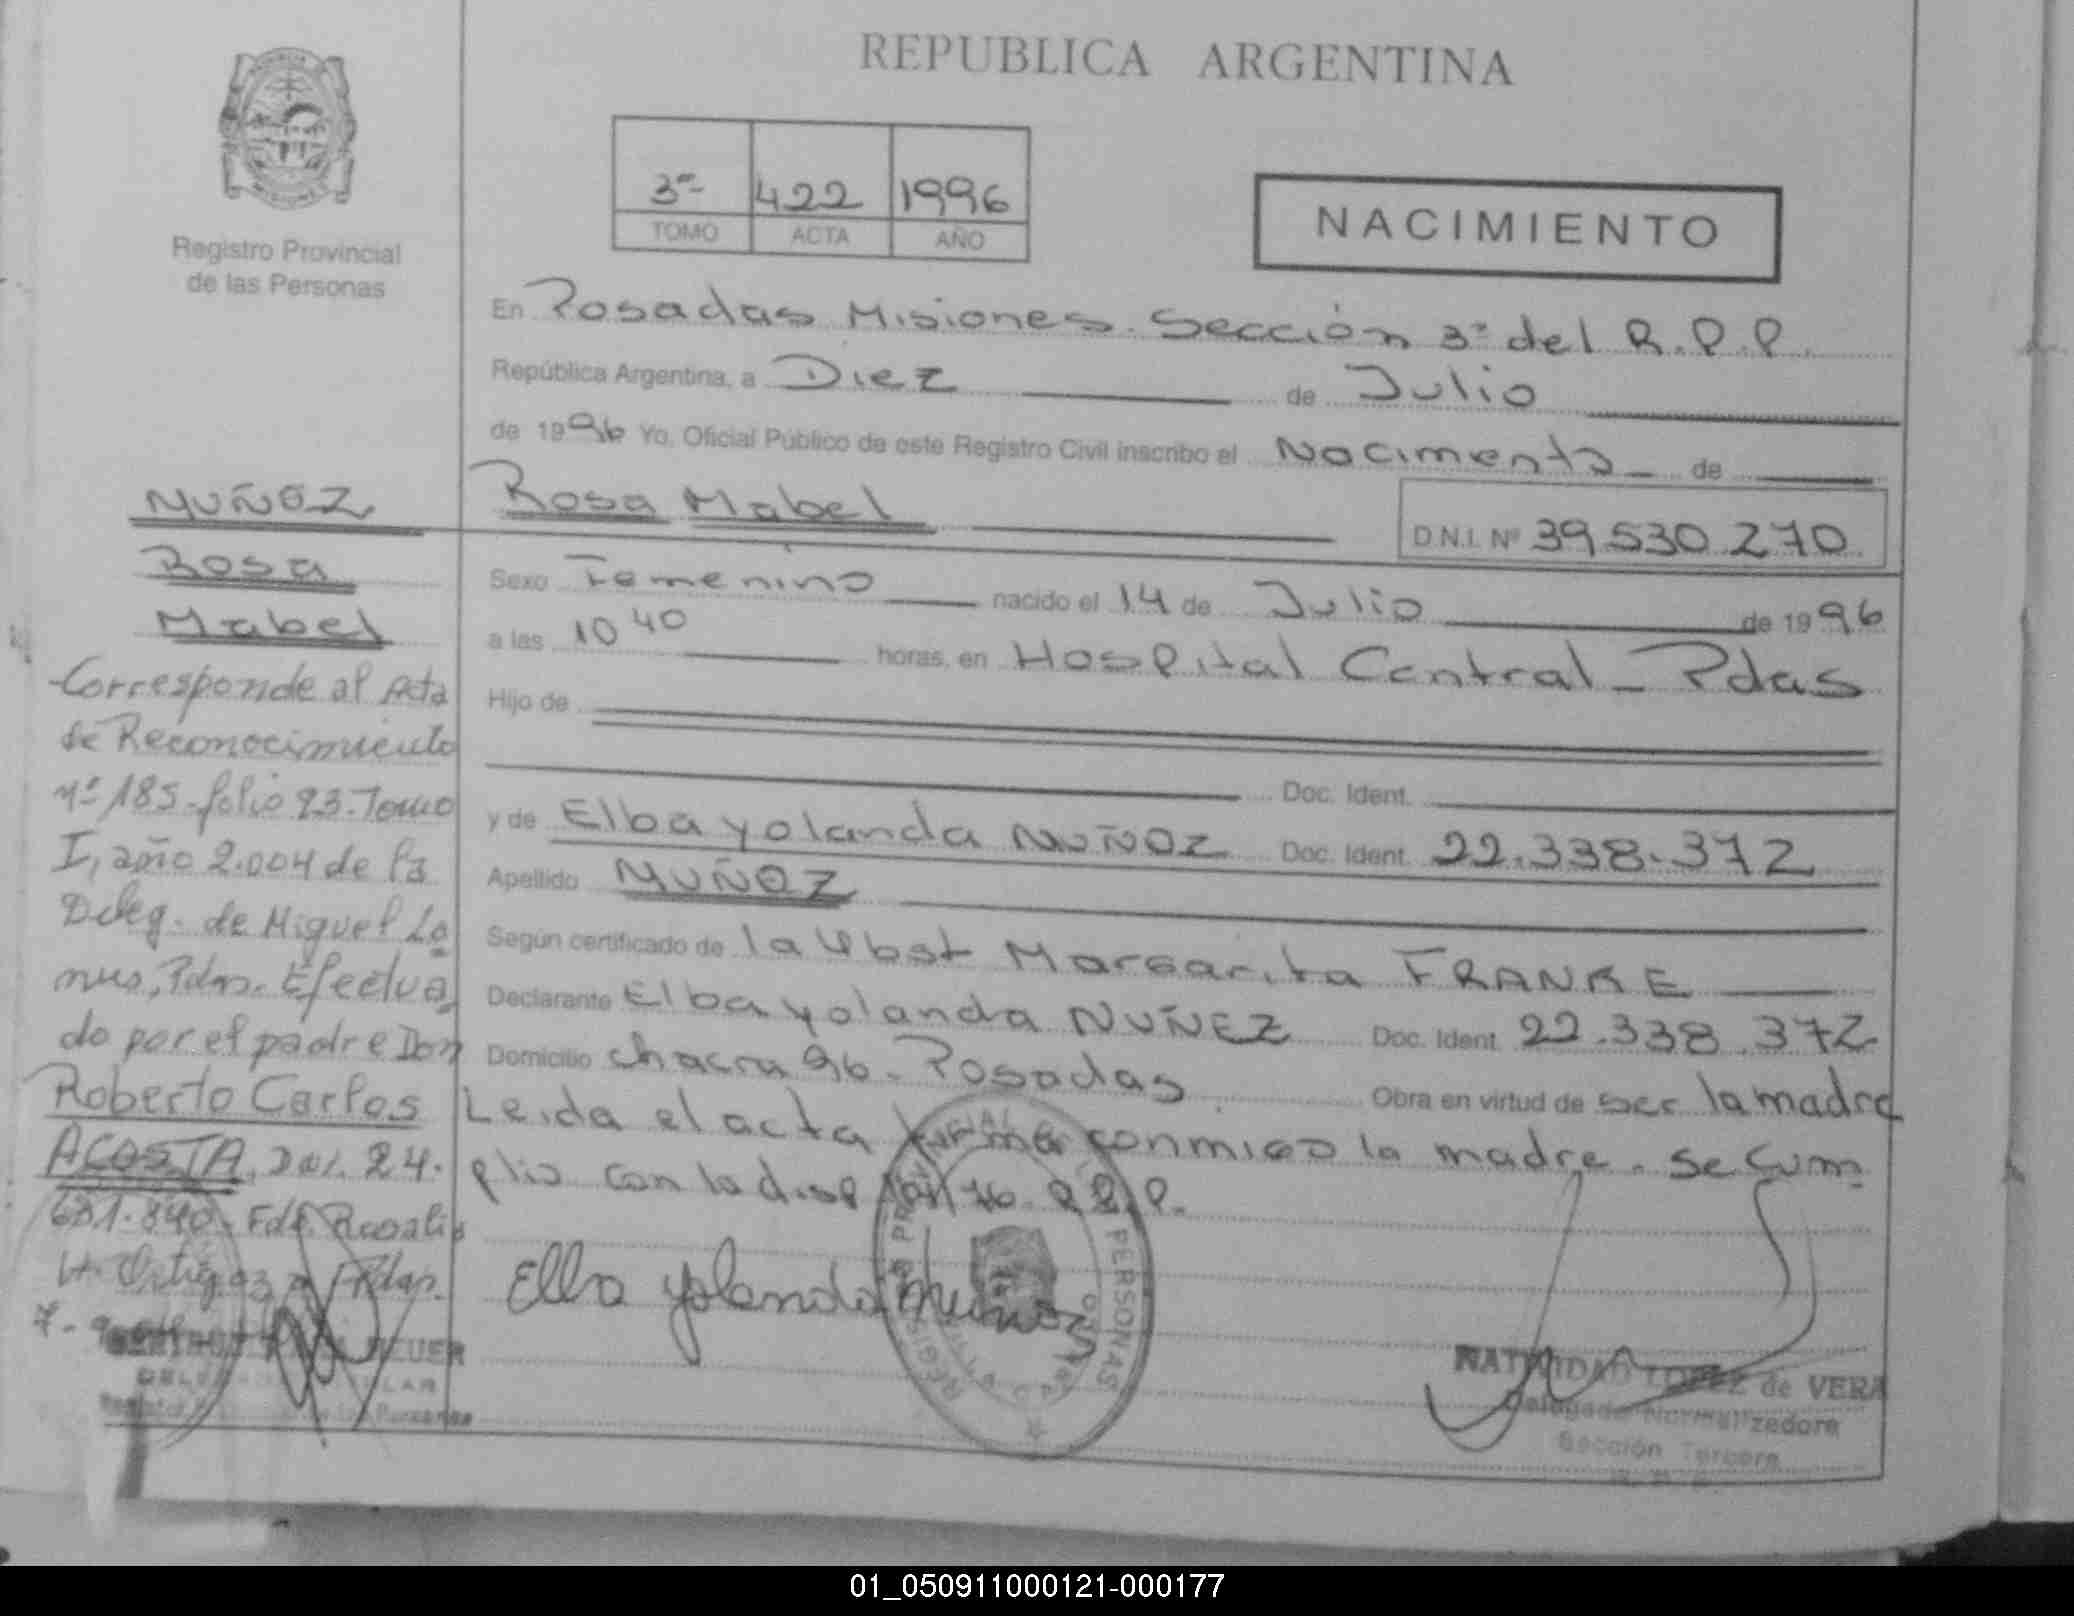 REPUBLICA ARGENTINA
Registro Provincial
de las Personas
3º 422 1996
TOMO ACTA AÑO
NACIMIENTO
En Posadas Misiones. Sección 3ª del R.P.P.
República Argentina, a Diez de Julio
de 1996 Yo, Oficial Público de este Registro Civil inscribo el Nacimiento de
Rosa Mabel
D.N.I. Nº 39.530.270
Sexo Femenino nacido el 14 de Julio de 1996
a las 10 40 horas, en Hospital Central - Pdas
Hijo de
Doc. Ident.
y de Elba Yolanda NUÑOZ Doc. Ident. 22.338.372
Apellido MUÑOZ
Según certificado de la Obst Margarita FRANKE
Declarante Elba Yolanda NUÑEZ Doc. Ident. 22.338.372
Domicilio chacra 96 - Posadas Obra en virtud de ser la madre
Leida el acta firma conmigo la madre. Se Cum
plio con la disp 76. R.P.P.
Elba Yolanda Muñoz
NATIVIDAD LOPEZ de VERA
Delegada Normalizadora
Sección Tercera
MUÑOZ
Rosa
Mabel
-Corresponde al Acta
de Reconocimiento
Nº 185 - folio 93 - Tomo
I, año 2.004 de la
Deleg. de Miguel La
nus, Pdas. Efectua
do por el padre Don
Roberto Carlos
ACOSTA, DNI. 24.
631.840
TITULAR
01_050911000121-000177